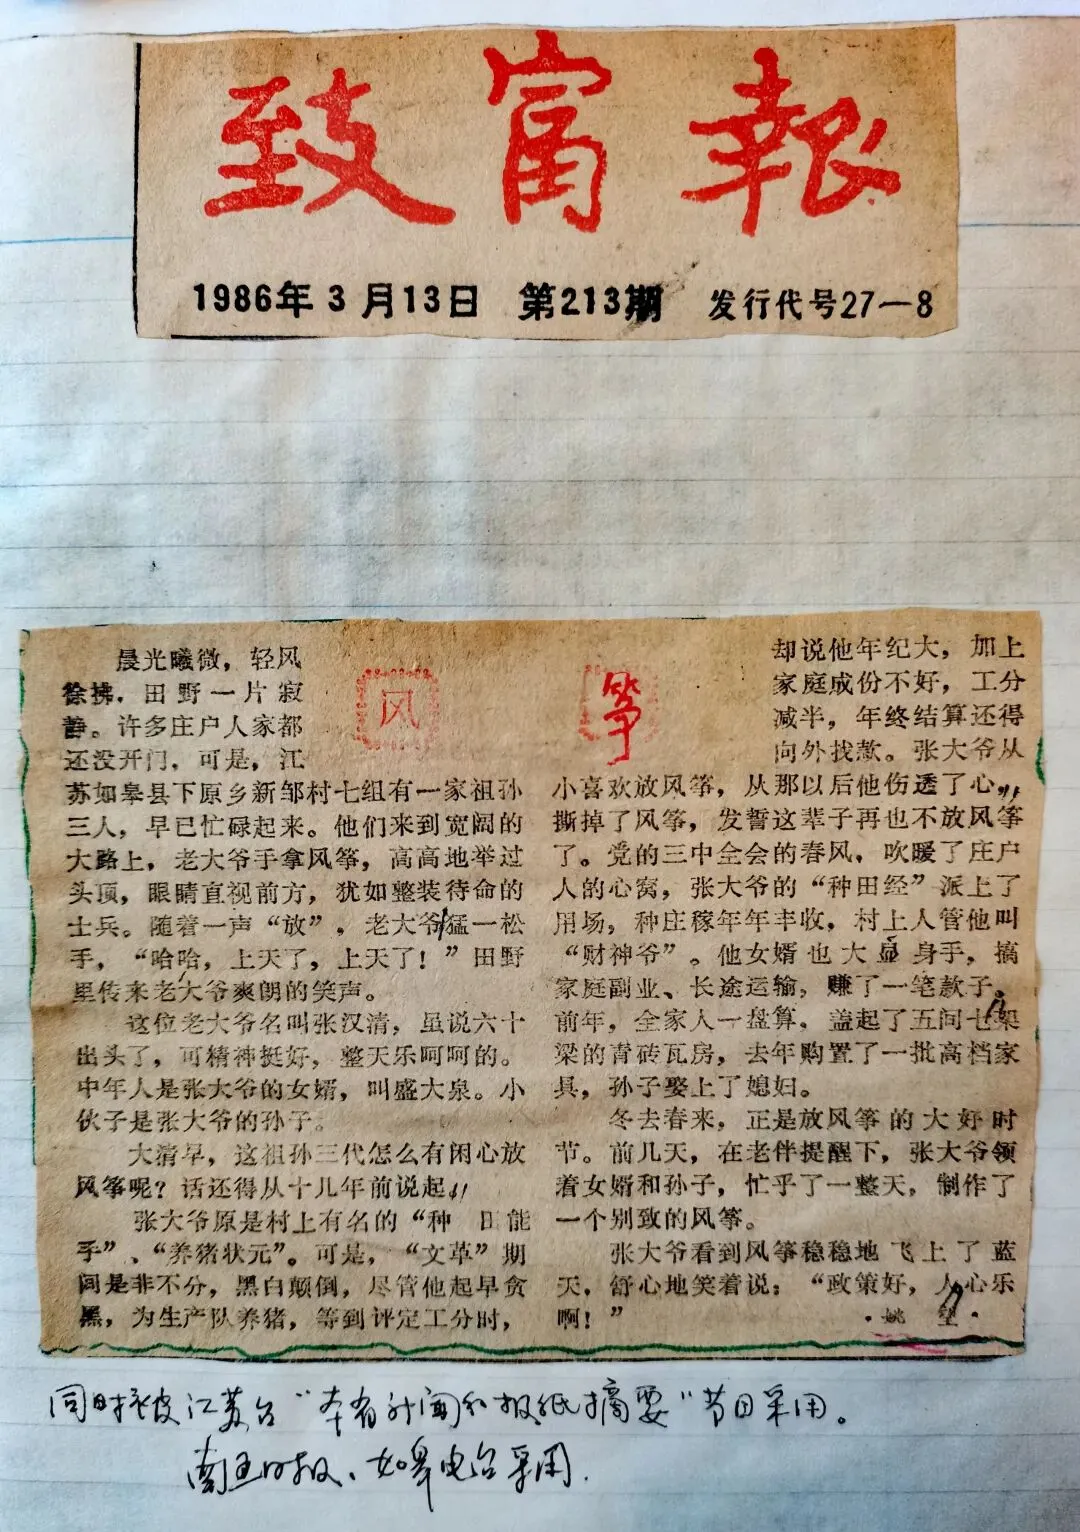 致富報
1986年3月13日 第213期 发行代号27—8
风筝
晨光曦微，轻风
徐拂，田野一片寂
静。许多庄户人家都
还没开门，可是，江
苏如皋县下原乡新邹村七组有一家祖孙
三人，早已忙碌起来。他们来到宽阔的
大路上，老大爷手拿风筝，高高地举过
头顶，眼睛直视前方，犹如整装待命的
士兵。随着一声“放”，老大爷猛一松
手，“哈哈，上天了，上天了！”田野
里传来老大爷爽朗的笑声。
这位老大爷名叫张汉清，虽说六十
出头了，可精神挺好，整天乐呵呵的。
中年人是张大爷的女婿，叫盛大泉。小
伙子是张大爷的孙子。
大清早，这祖孙三代怎么有闲心放
风筝呢？话还得从十几年前说起。
张大爷原是村上有名的“种田能
手”、“养猪状元”。可是，“文革”期
间是非不分，黑白颠倒，尽管他起早贪
黑，为生产队养猪，等到评定工分时，
却说他年纪大，加上
家庭成份不好，工分
减半，年终结算还得
向外找款。张大爷从
小喜欢放风筝，从那以后他伤透了心，
撕掉了风筝，发誓这辈子再也不放风筝
了。党的三中全会的春风，吹暖了庄户
人的心窝，张大爷的“种田经”派上了
用场，种庄稼年年丰收，村上人管他叫
“财神爷”。他女婿也大显身手，搞
家庭副业、长途运输，赚了一笔款子。
前年，全家人一盘算，盖起了五间七架
梁的青砖瓦房，去年购置了一批高档家
具，孙子娶上了媳妇。
冬去春来，正是放风筝的大好时
节。前几天，在老伴提醒下，张大爷领
着女婿和孙子，忙乎了一整天，制作了
一个别致的风筝。
张大爷看到风筝稳稳地飞上了蓝
天，舒心地笑着说：“政策好，人心乐
啊！”
·姚望·
同时被江苏台“本省新闻和报纸摘要”节目采用。
南通时报、如皋电台采用.